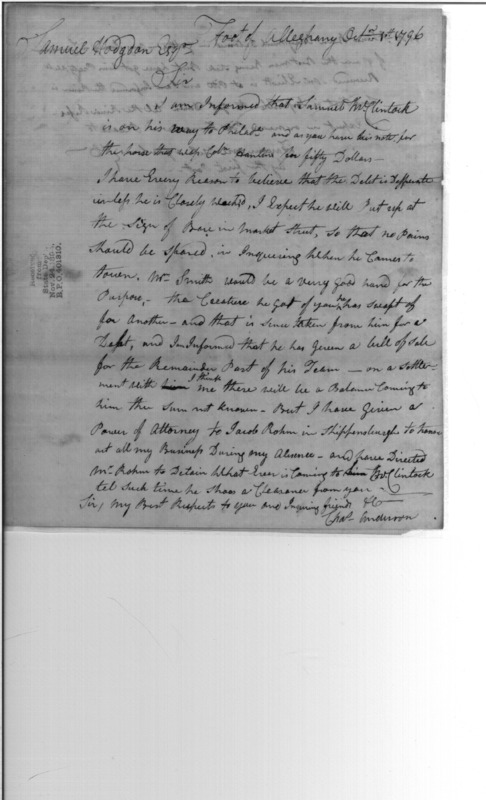 Foot of Alleghany Octr 1st 1796
Samuel Hodgdon Esqr
Sir
I am Informed that Samuel McClintock
is on his way to Philada and as you have his note for
the horse that was Colo. for fifty Dollars —
I have Every Reason to believe that the Debt is Desperate
unless he is Closely watchd, I Expect he will Put up at
the Sign of Bare in market Street, So that no Pains
Should be Spared, in Inquireing When he Comes to
town. Mr Smith would be a very Good hand for the
Purpose, — the Creature he Got of you he has swapt of
for Another — and that is since taken from him for a
Debt, and Im Informed that he has Given a bill of Sale
for the Remainder Part of his Team — on a Settle-
ment with me I think there will be a Balance Coming to
him the Sum not known — But I have Given a
Power of Attorney to Jacob Rahm in Shippensburgh to transe
act all my Business During my Absence — and have Directed
Mr Rahm to Detain What Ever is Coming to McClintock
tel Such time he Shoes a Clearance from you —
Sir, My Best Respects to you and Inquiring friends &C
Chas Anderson
Received
from
State Dep
Nov. 24,
R.P.O. 401810.